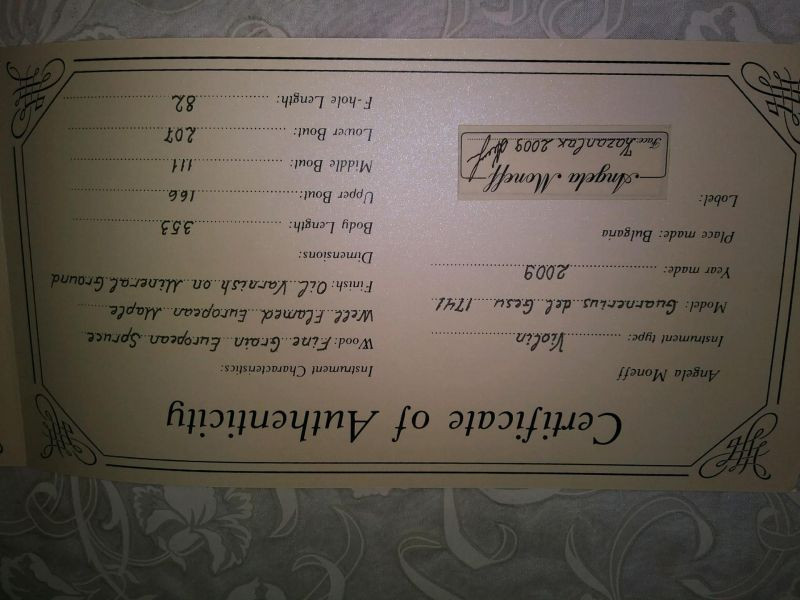 Certificate of Authenticity
Angela Moneff
Instrument type: Violin
Model: Guarnerius del Gesu 1741
Year made: 2009
Place made: Bulgaria
Lobel:
Angela Moneff
Fece: Kazanlak 2009
Instrument Characteristics:
Wood: Fine Grain European Spruce
Well Flamed European Maple
Finish: Oil Varnish on Mineral Ground
Dimensions:
Body Length: 353
Upper Bout: 166
Middle Bout: 111
Lower Bout: 207
F-hole Length: 82